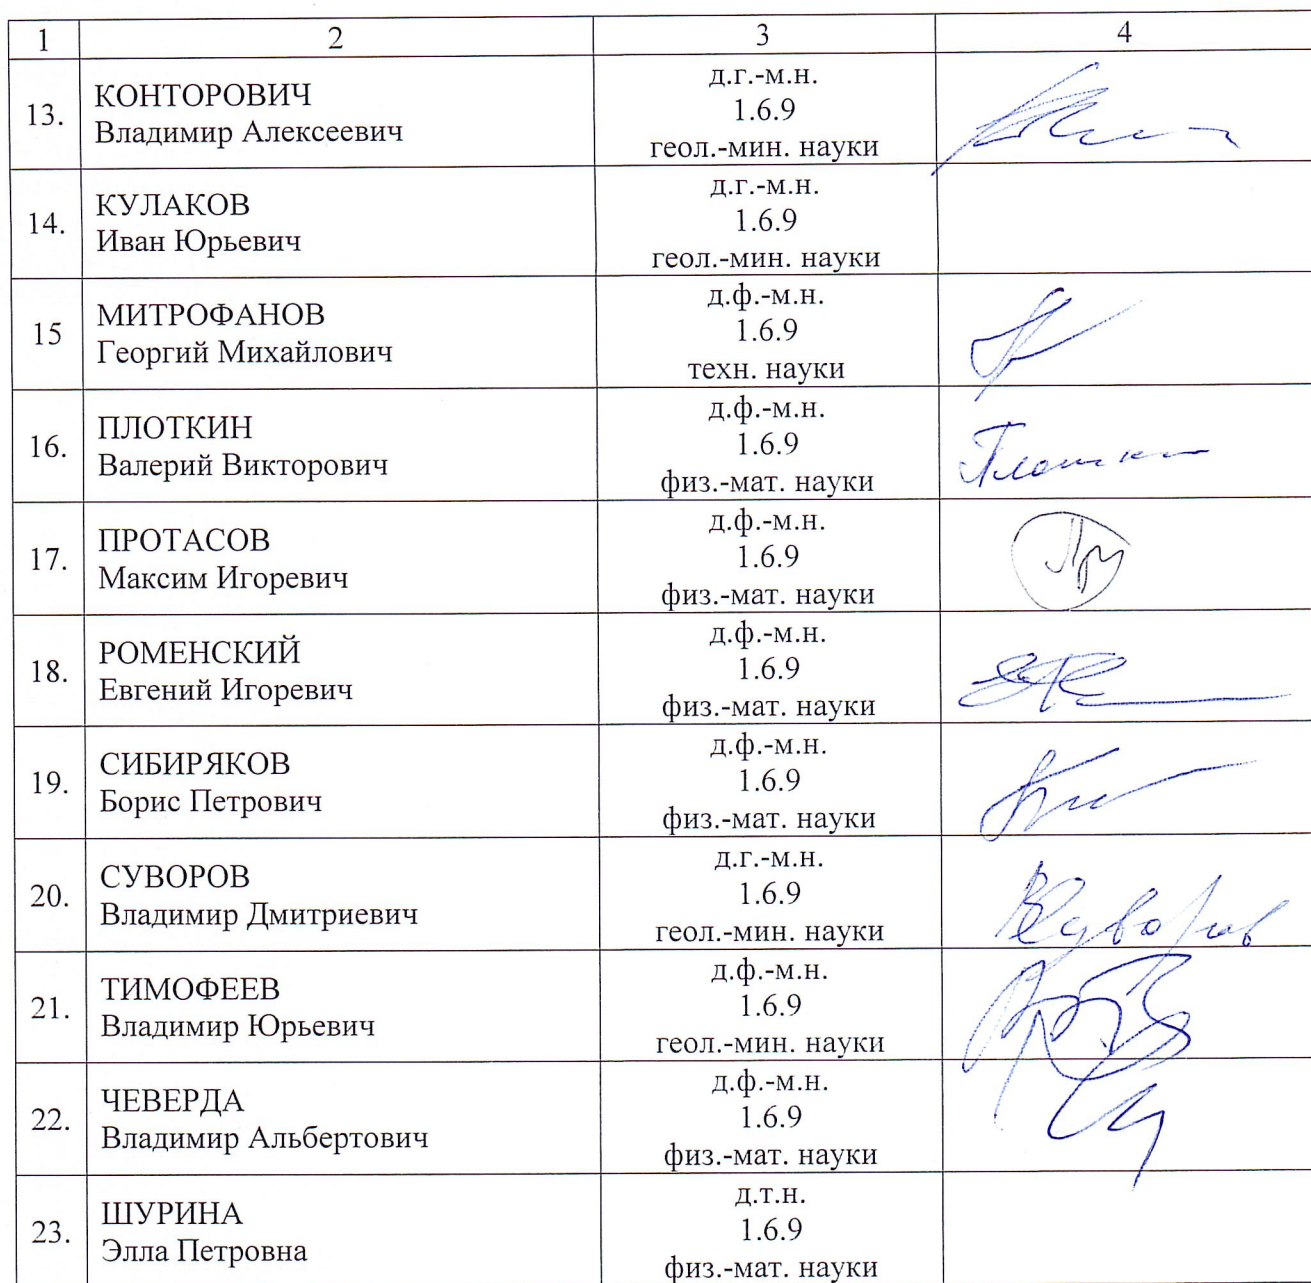 1 2 3 4
13. КОНТОРОВИЧ
Владимир Алексеевич
д.г.-м.н.
1.6.9
геол.-мин. науки
14. КУЛАКОВ
Иван Юрьевич
д.г.-м.н.
1.6.9
геол.-мин. науки
15 МИТРОФАНОВ
Георгий Михайлович
д.ф.-м.н.
1.6.9
техн. науки
16. ПЛОТКИН
Валерий Викторович
д.ф.-м.н.
1.6.9
физ.-мат. науки
17. ПРОТАСОВ
Максим Игоревич
д.ф.-м.н.
1.6.9
физ.-мат. науки
18. РОМЕНСКИЙ
Евгений Игоревич
д.ф.-м.н.
1.6.9
физ.-мат. науки
19. СИБИРЯКОВ
Борис Петрович
д.ф.-м.н.
1.6.9
физ.-мат. науки
20. СУВОРОВ
Владимир Дмитриевич
д.г.-м.н.
1.6.9
геол.-мин. науки
21. ТИМОФЕЕВ
Владимир Юрьевич
д.ф.-м.н.
1.6.9
геол.-мин. науки
22. ЧЕВЕРДА
Владимир Альбертович
д.ф.-м.н.
1.6.9
физ.-мат. науки
23. ШУРИНА
Элла Петровна
д.т.н.
1.6.9
физ.-мат. науки